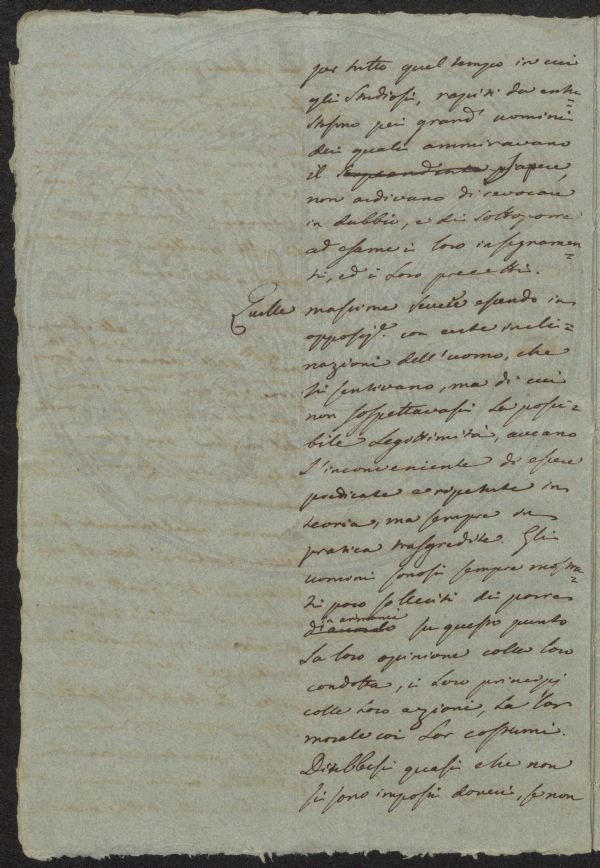 per tutto quel tempo in cui
gli Studiosi, rapiti da entu=
siasmo pei grand' uomini
dei quali ammiravano
il sapere,
non ardivano di revocare
in dubbio, e di sottoporre
ad esame i loro insegnamen=
ti, ed i Loro precetti.
Quelle massime severe essendo in
opposiz.e con certe incli=
nazioni dell'uomo, che
si sentivano, ma di cui
non sospettavasi la possi=
bile legittimità, aveano
l'inconveniente di essere
predicate e ripetute in
teoria, ma sempre in
pratica trasgredite. Gli
uomini sonosi sempre mostra=
ti poco solleciti di porre
in armonia
su questo punto
La loro opinione colla loro
condotta, i Loro principj
colle Loro azioni, La lor
morale coi Lor costumi.
Direbbesi quasi che non
si sono imposti doveri, se non